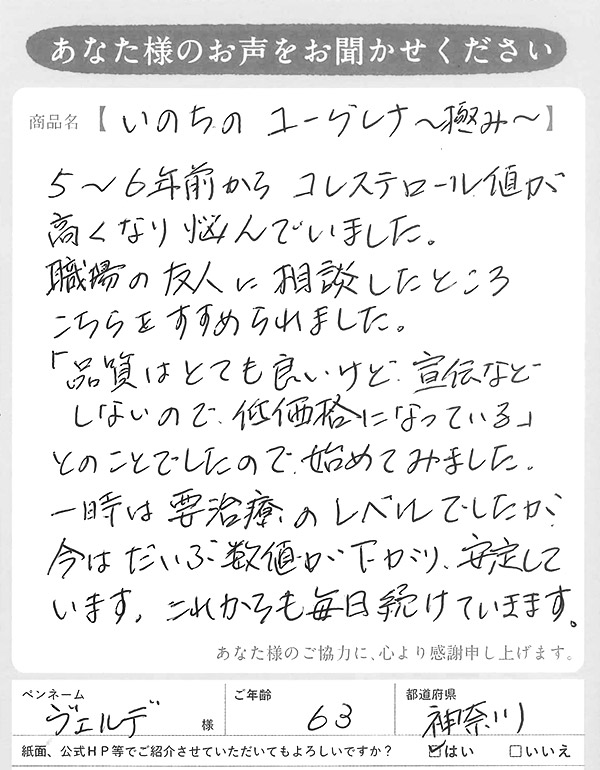 あなた様のお声をお聞かせください
商品名【いのちの ユーグレナ〜極み〜】
5〜6年前から コレステロール値が
高くなり悩んでいました。
職場の友人に相談したところ
こちらをすすめられました。
「品質はとても良いけど、宣伝など
しないので、低価格になっている」
とのことでしたので、始めてみました。
一時は要治療のレベルでしたが、
今はだいぶ数値が下がり、安定して
います。これからも毎日続けていきます。
あなた様のご協力に、心より感謝申し上げます。
ペンネーム ヴェルデ 様 ご年齢 63 都道府県 神奈川
紙面、公式HP等でご紹介させていただいてもよろしいですか？ ☑はい □いいえ